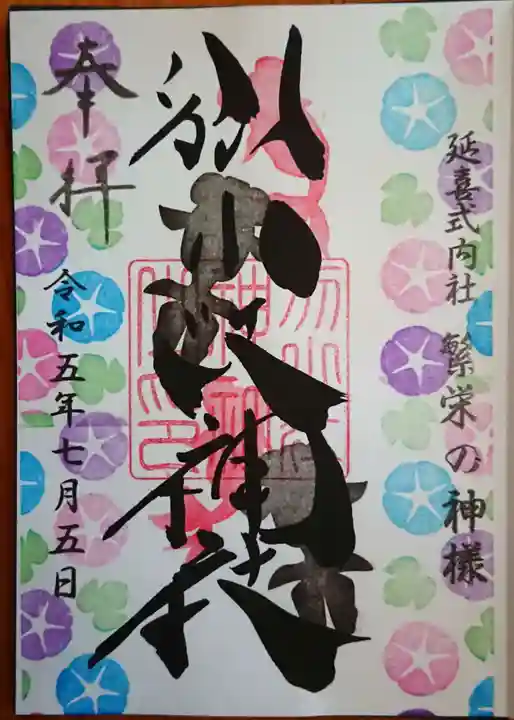 延喜式内社 繁栄の神様
別小江神社
奉拝
令和五年七月五日